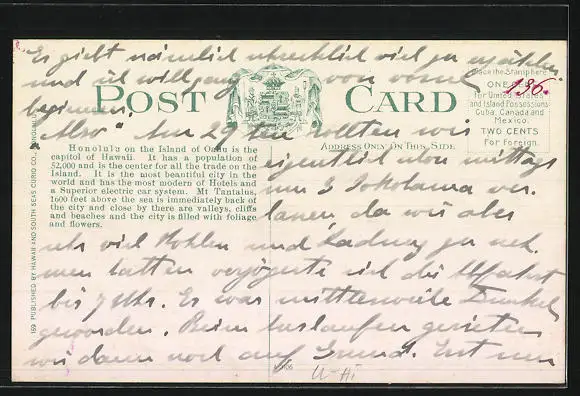 Es giebt nämlich schrecklich viel zu erzählen
und ich will ganz von vorne
beginnen.
POST CARD
Place the Stamp here
ONE CENT
for United States
and Island Possessions
Cuba, Canada and
Mexico.
TWO CENTS
For Foreign.
136.
"Also" Am 29 ten sollten wir
ADDRESS ONLY ON THIS SIDE.
Honolulu on the Island of Oahu is the
capitol of Hawaii. It has a population of
52,000 and is the center for all the trade on the
Island. It is the most beautiful city in the
world and has the most modern of Hotels and
a Superior electric car system. Mt Tantalus,
1600 feet above the sea is immediately back of
the city and close by there are valleys, cliffs
and beaches and the city is filled with foliage
and flowers.
eigentlich schon mittags
um 3 Jokohama ver-
lassen, da wir aber
sehr viel Kohlen und Ladung zu neh-
men hatten verzögerte sich die Abfahrt
bis 7 Uhr. Es war mittlerweile Dunkel
geworden. Beim Auslaufen gerieten
wir dann noch auf Grund. Erst nun
169 PUBLISHED BY HAWAII AND SOUTH SEAS CURIO CO., HONOLULU
U-Hi